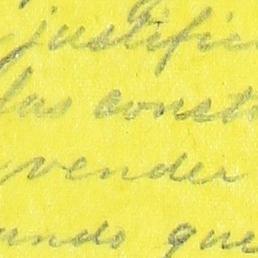 justific
las const
vender
ando que